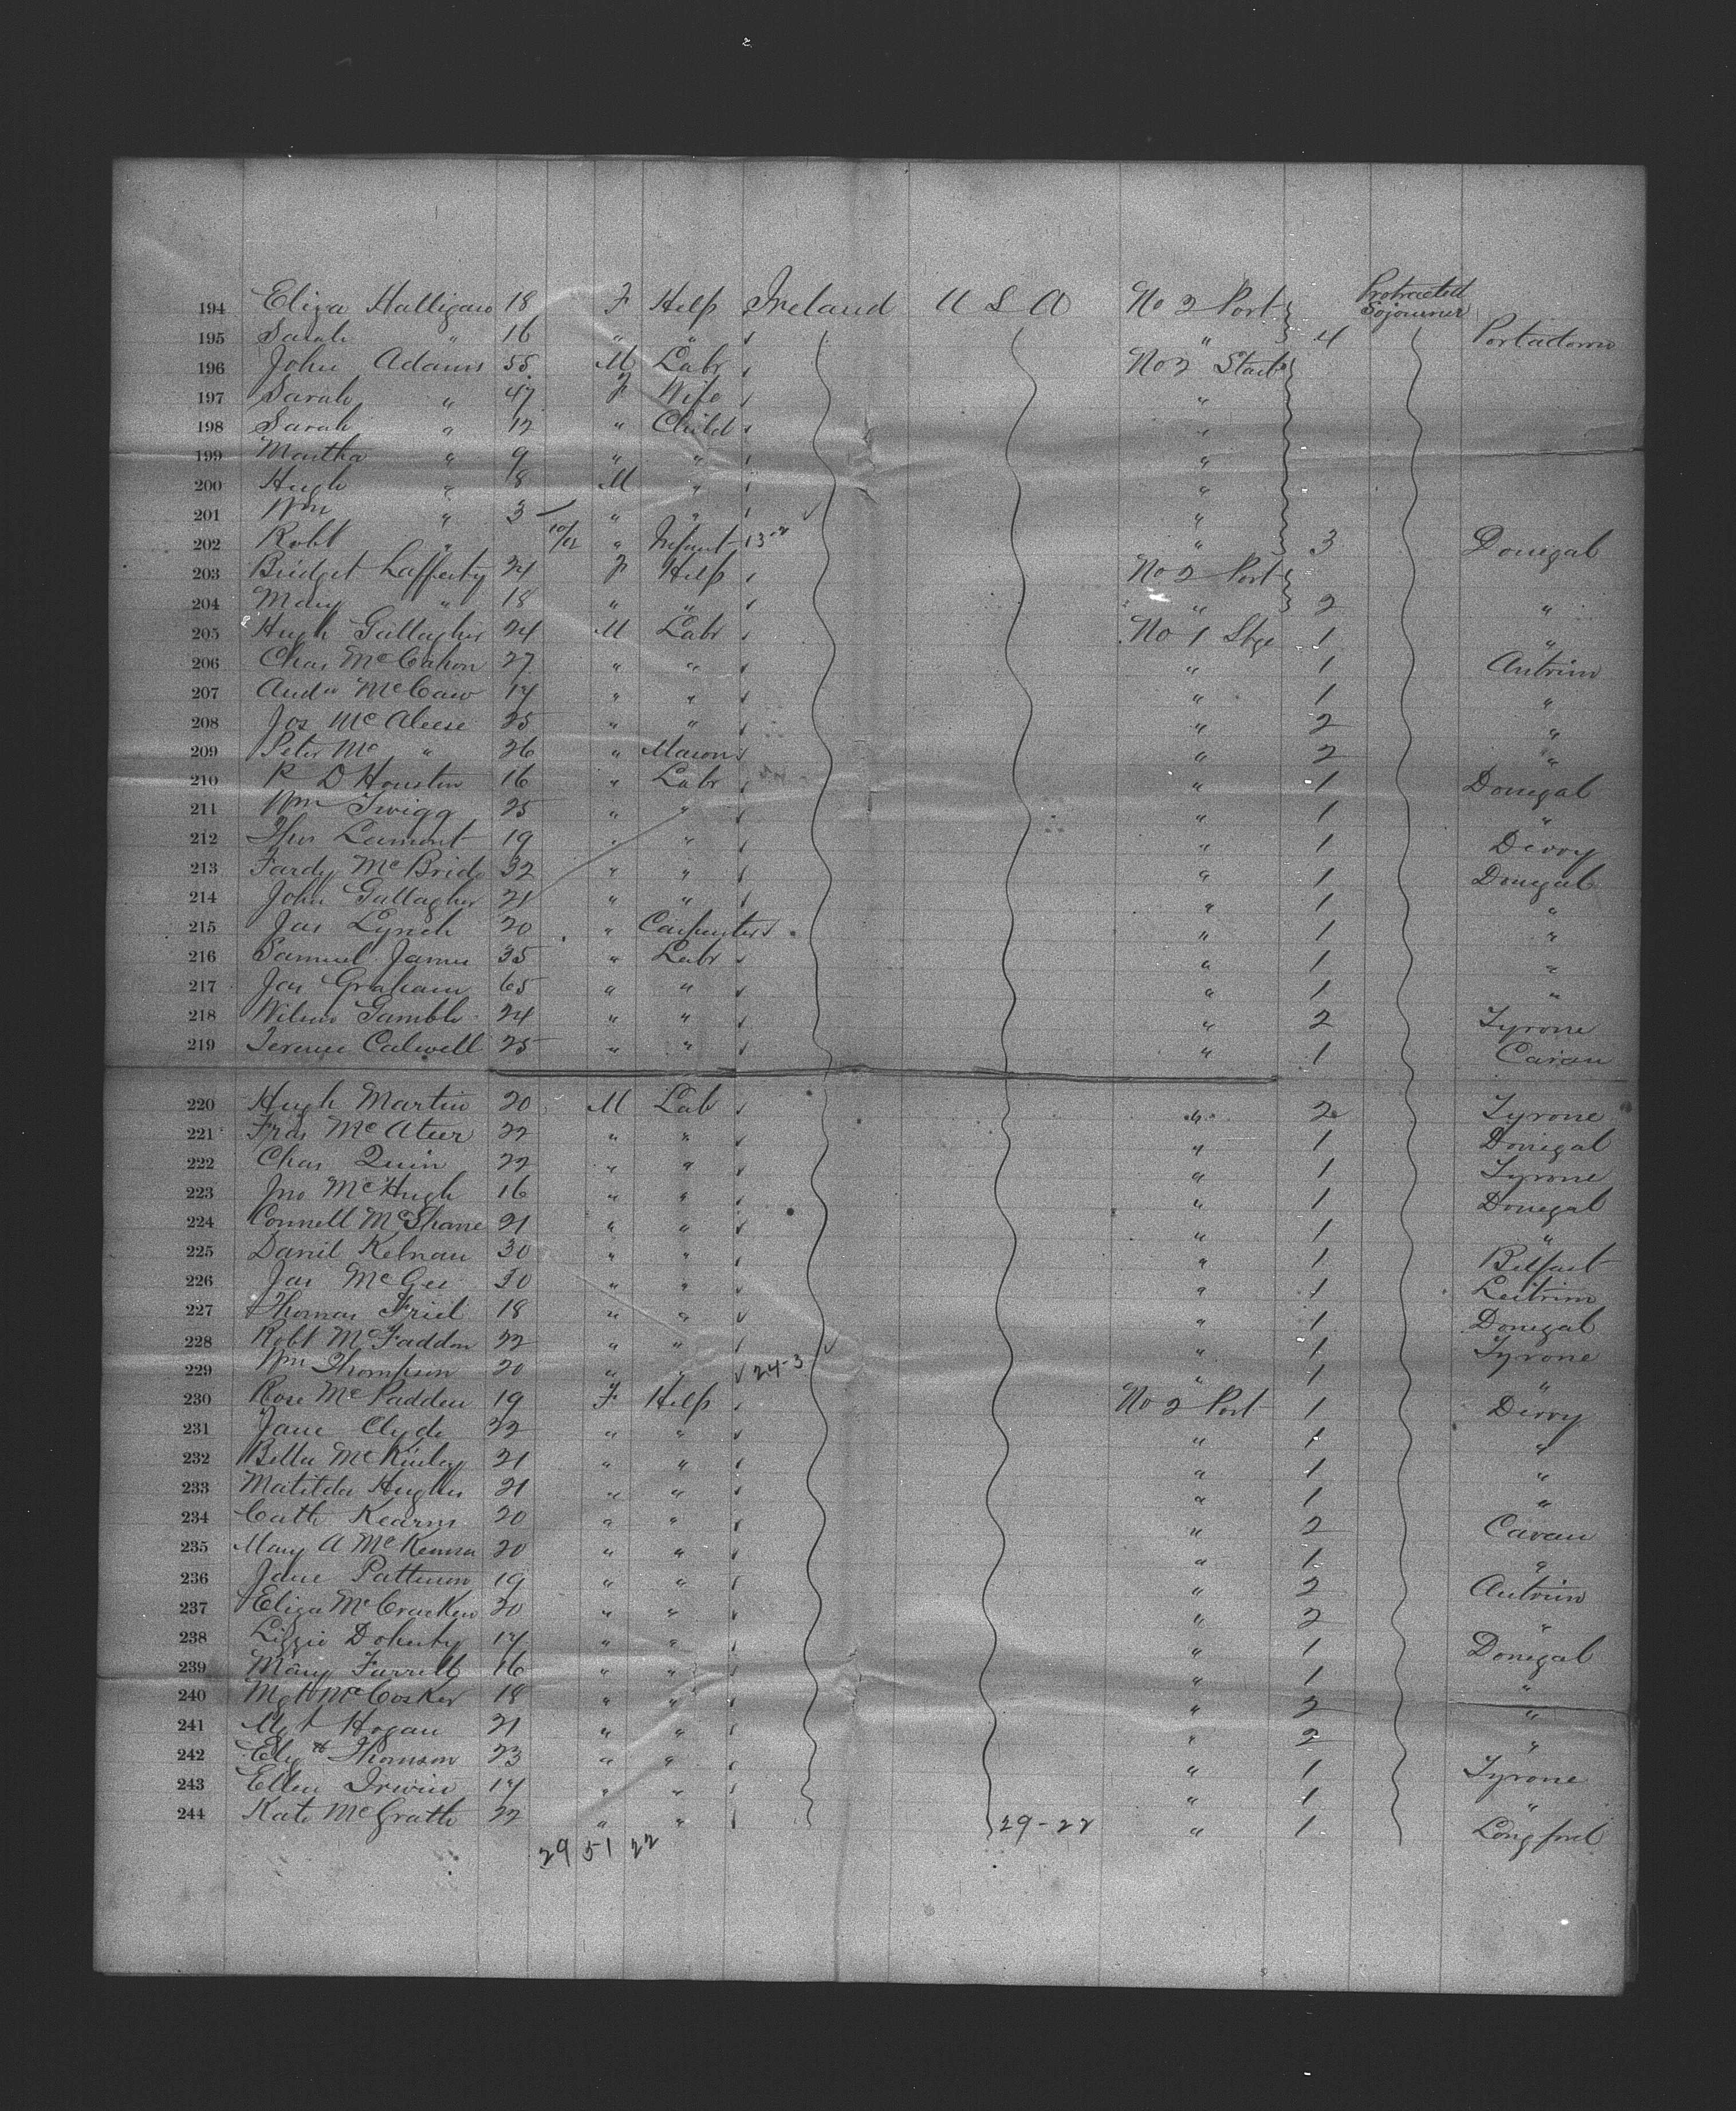 2
194 Eliza Halligan 18 F Help Ireland U S A No 2 Port Protracted Sojourner
195 Sarah " 16 " " " 4 Portadown
196 John Adams 55 M Labr No 2 Starb
197 Sarah " 47 F Wife "
198 Sarah " 12 " Child "
199 Martha " 9 " " "
200 Hugh " 8 M " "
201 Wm " 3 " " "
202 Robt " 10/12 " Infant 13 " 3 Donegal
203 Bridget Lafferty 24 F Help No 2 Port
204 Mary " 18 " " " 2 "
205 Hugh Gallagher 24 M Labr No 1 Stge 1 "
206 Chas McCahon 27 " " " 1 Antrim
207 Andw McCaw 17 " " " 1 "
208 Jos McAleese 25 " " " 2 "
209 Peter Mc " 26 " Mason " 2 "
210 R D Houston 16 " Labr " 1 Donegal
211 Wm Twigg 25 " " " 1 "
212 Thos Lamont 19 " " " 1 Derry
213 Fardy McBride 32 " " " 1 Donegal
214 John Gallagher 21 " " " 1 "
215 Jas Lynch 20 " Carpenter " 1 "
216 Samuel James 35 " Labr " 1 "
217 Jas Graham 65 " " " 1 "
218 Wilson Gamble 24 " " " 2 Tyrone
219 Terence Calwell 25 " " " 1 Cavan
220 Hugh Martin 20 M Lab " 2 Tyrone
221 Fras McAteer 22 " " " 1 Donegal
222 Chas Quin 22 " " " 1 Tyrone
223 Jno McHugh 16 " " " 1 Donegal
224 Connell McShane 21 " " " 1 "
225 Danil Kelnan 30 " " " 1 Belfast
226 Jas McGee 30 " " " 1 Leitrim
227 Thomas Friel 18 " " " 1 Donegal
228 Robt McFadden 22 " " " 1 Tyrone
229 Wm Thompson 20 " " 24-3 " 1 "
230 Rose McPadden 19 F Help No 2 Port 1 Derry
231 Jane Clyde 22 " " " 1 "
232 Bella McKinley 21 " " " 1 "
233 Matilda Hughes 21 " " " 1 "
234 Cath Kearns 20 " " " 2 Cavan
235 Mary A McKenna 20 " " " 1 "
236 Jane Patterson 19 " " " 2 Antrim
237 Eliza McCracken 20 " " " 2 "
238 Lizzie Doherty 17 " " " 1 Donegal
239 Mary Farrell 16 " " " 1 "
240 Mgt McCosker 18 " " " 2 "
241 Mgt Hogan 21 " " " 2 "
242 Elizth Thomson 23 " " " 1 Tyrone
243 Ellen Irwin 17 " " " 1 "
244 Kate McGrath 22 " " 29-22 " 1 Longford
29 51 22